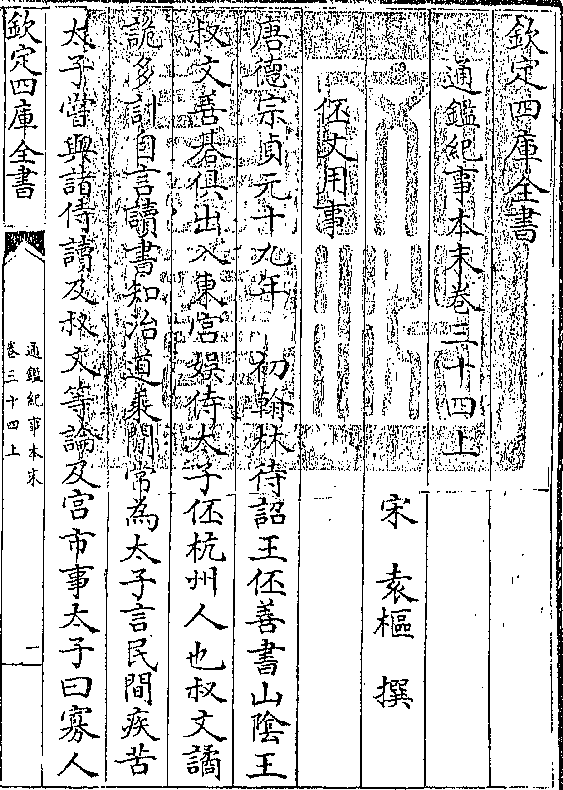 欽定四庫全書
通鑑紀事本末卷三十四上
宋 袁樞 撰
伾文用事
唐德宗貞元十九年 初翰林待詔王伾善書山陰王
叔文善碁俱出入東宫娯侍太子伾杭州人也叔文譎
詭多詐自言讀書知治道乘間常為太子言民間疾苦
太子嘗與諸侍讀及叔文等論及宫市事太子曰寡人
欽定四庫全書
通鑑紀事本末
卷三十四上
一